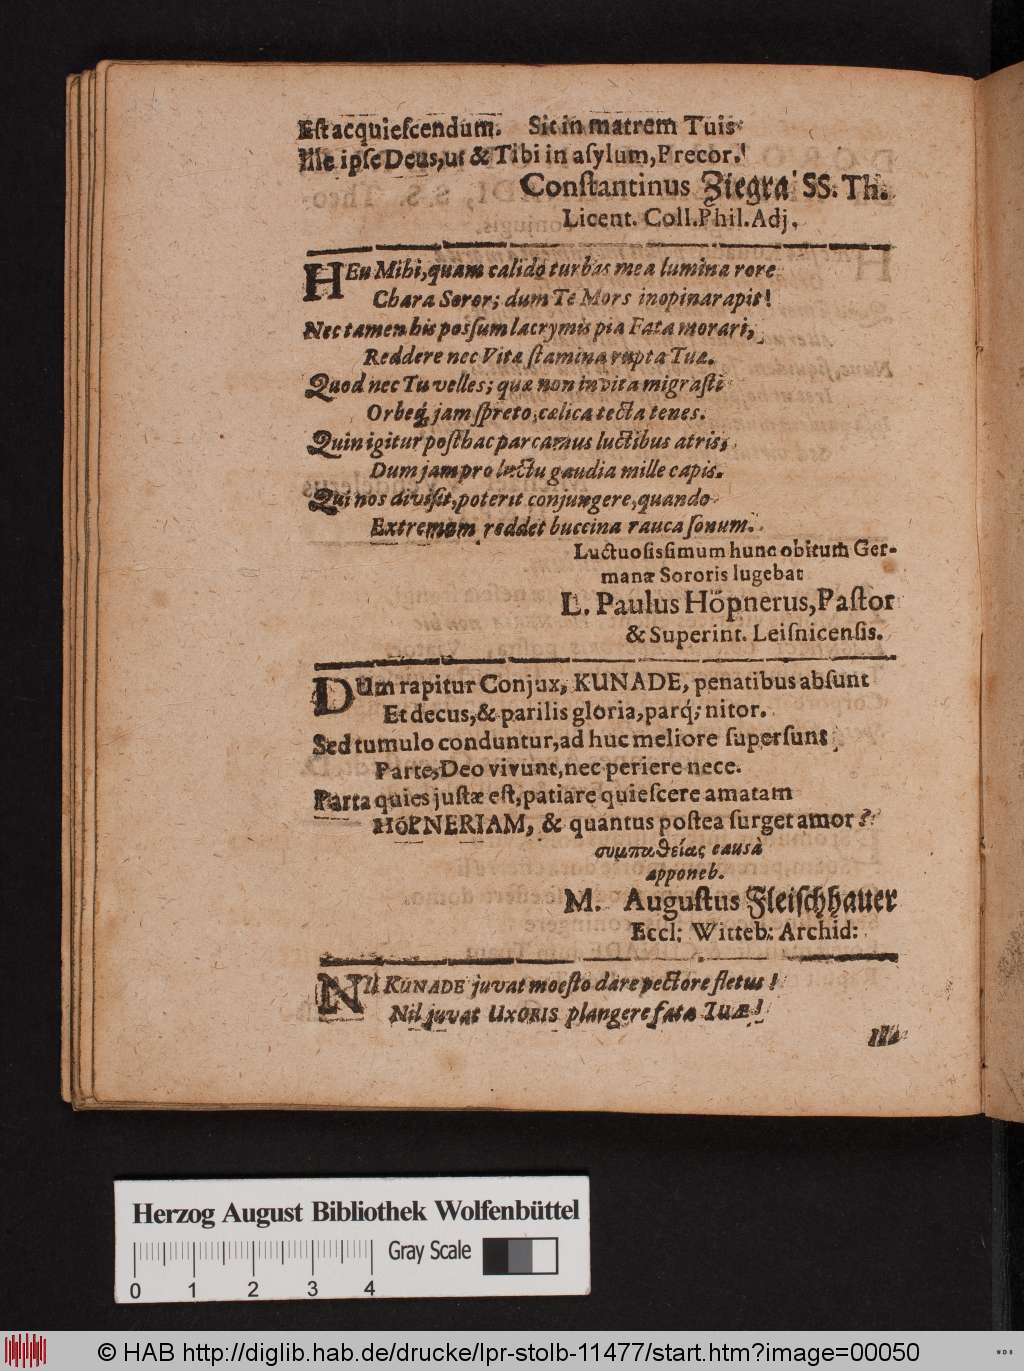 Est acquiescendum. Sit in matrem Tuis
Ille ipse Deus, ut & Tibi in asylum, Precor.!
Constantinus Ziegra' SS. Th.
Licent. Coll. Phil. Adj.
HEu Mihi, quam calido turbas mea lumina rore
Chara Soror; dum Te Mors inopina rapit!
Nec tamen his possum lacrymis pia Fata morari,
Reddere nec Vitæ stamina rupta Tuæ.
Quod nec Tu velles; quæ non invita migrasti
Orbeq́; jam spreto, cælica tecta tenes.
Quin igitur posthac parcamus luctibus atris,
Dum jam pro luctu gaudia mille capis.
Qui nos divisit, poterit conjungere, quando
Extremum reddet buccina rauca sonum.
Luctuosissimum hunc obitum Ger-
manæ Sororis lugebat
L. Paulus Höpnerus, Pastor
& Superint. Leisnicensis.
DUm rapitur Conjux, KUNADE, penatibus absunt
Et decus, & parilis gloria, parq́; nitor.
Sed tumulo conduntur, adhuc meliore supersunt
Parte, Deo vivunt, nec periere nece.
Parta quies justæ est, patiare quiescere amatam
HöPNERIAM, & quantus postea surget amor?
συμπαθείας causà
apponeb.
M. Augustus Fleischhauer
Eccl: Witteb: Archid:
NIl KUNADE juvat moesto dare pectore fletus!
Nil juvat UXORIS plangere fata TUÆ!
Herzog August Bibliothek Wolfenbüttel
Gray Scale
0 1 2 3 4
© HAB http://diglib.hab.de/drucke/lpr-stolb-11477/start.htm?image=00050